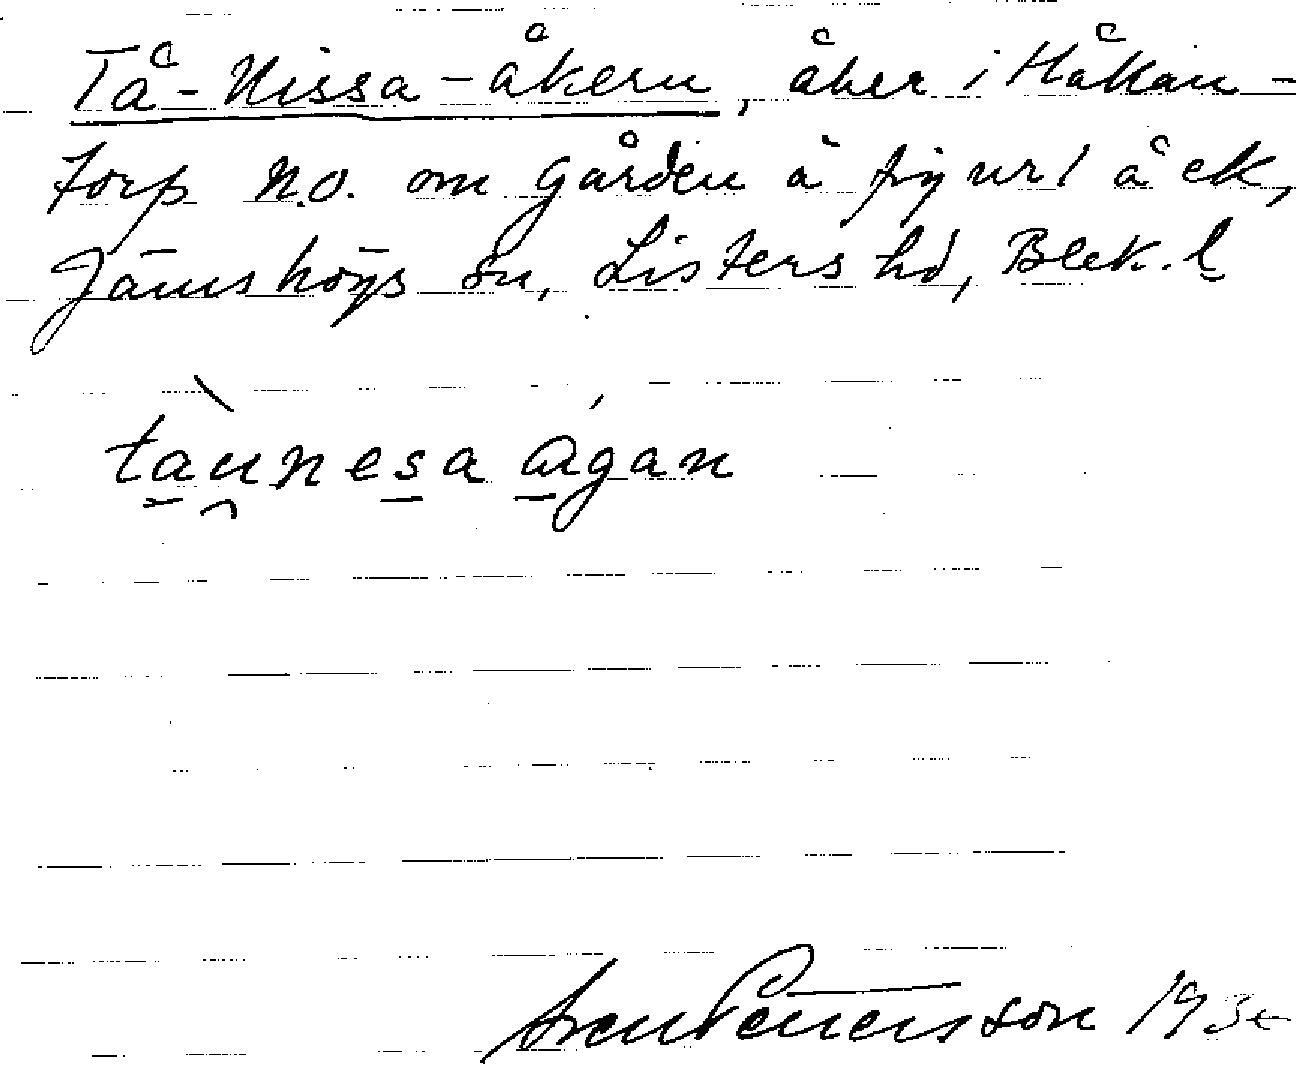 Tå-Nissa-åkern, åker i Håkan-
torp N.O. om gården å figur 1 å ek,
Jämshögs sn, Listers hd, Blek. l
taunesa ágan
Sven Petersson 193